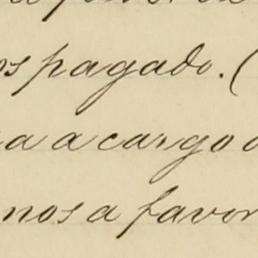 os pagado. (
a a cargo d
nos a favor